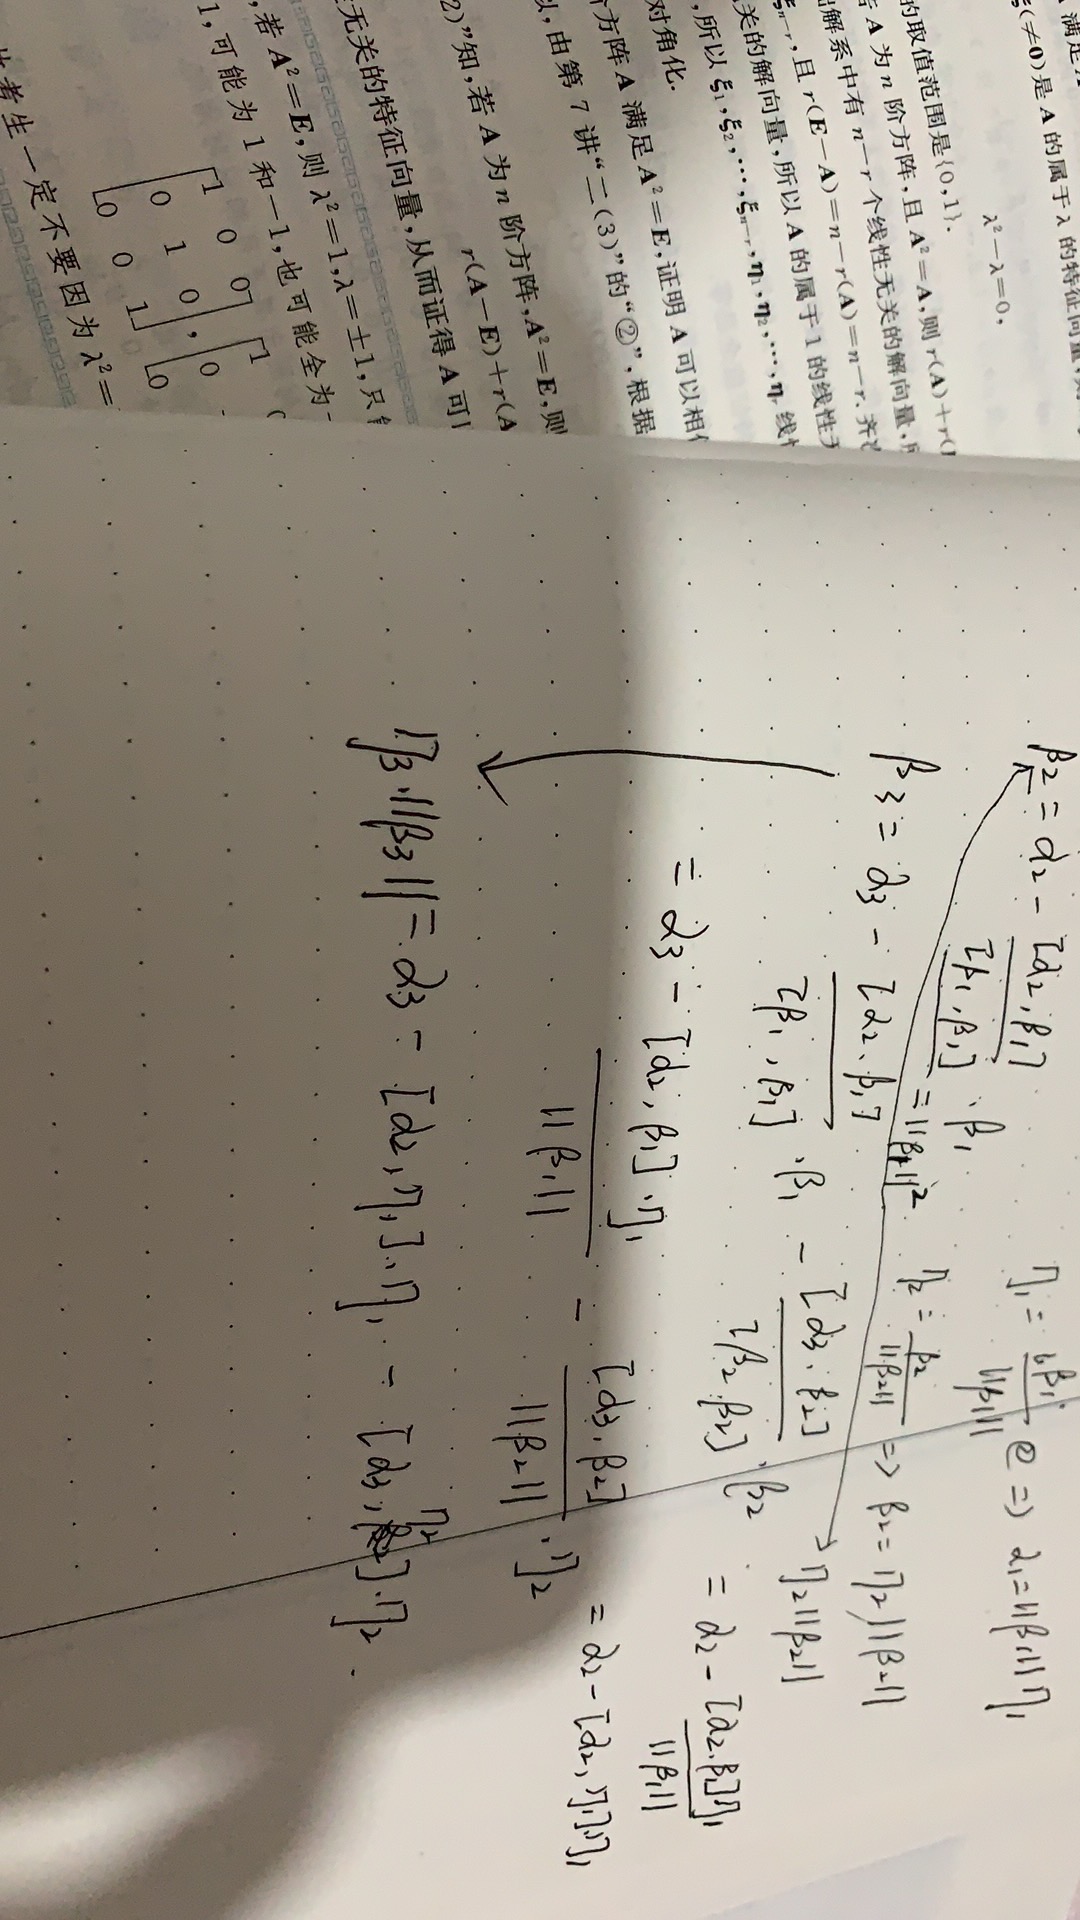 ξ(≠0)是 A 的属于 λ 的特征向量
λ²－λ＝0,
的取值范围是{0,1}.
A 为 n 阶方阵,且 A²＝A,则 r(A)＋r(
解系中有 n－r 个线性无关的解向量,
且 r(E－A)＝n－r(A)＝n－r. 齐
关的解向量,所以 A 的属于 1 的线性
,所以 ξ₁,ξ₂,…,ξₙ₋ᵣ,η₁,η₂,…,ηᵣ 线
对角化.
方阵 A 满足 A²＝E,证明 A 可以相
,由第 7 讲“二(3)”的“②”,根据
2)”知,若 A 为 n 阶方阵,A²＝E,则
r(A－E)＋r(A
无关的特征向量,从而证得 A 可
,若 A²＝E,则 λ²＝1,λ＝±1,只
1,可能为 1 和－1,也可能全为
1 0 0
0 1 0 , 0 0
0 0 1 0
考生一定不要因为 λ²＝
β₂ = α₂ - [α₂,β₁]/[β₁,β₁] · β₁ η₁ = β₁/||β₁|| ⇒ α₁ = ||β₁||η₁
= ||β₁||² η₂ = β₂/||β₂|| ⇒ β₂ = η₂||β₂||
β₃ = α₃ - [α₂,β₁]/[β₁,β₁] · β₁ - [α₃,β₂]/[β₂,β₂] · β₂ η₂||β₂||
= α₂ - [α₂,β₁]η₁/||β₁||
= α₃ - [α₂,β₁]·η₁/||β₁|| - [α₃,β₂]/||β₂|| · η₂ = α₂ - [α₂,η₁]η₁
η₃·||β₃|| = α₃ - [α₂,η₁]·η₁ - [α₃,η₂]·η₂.